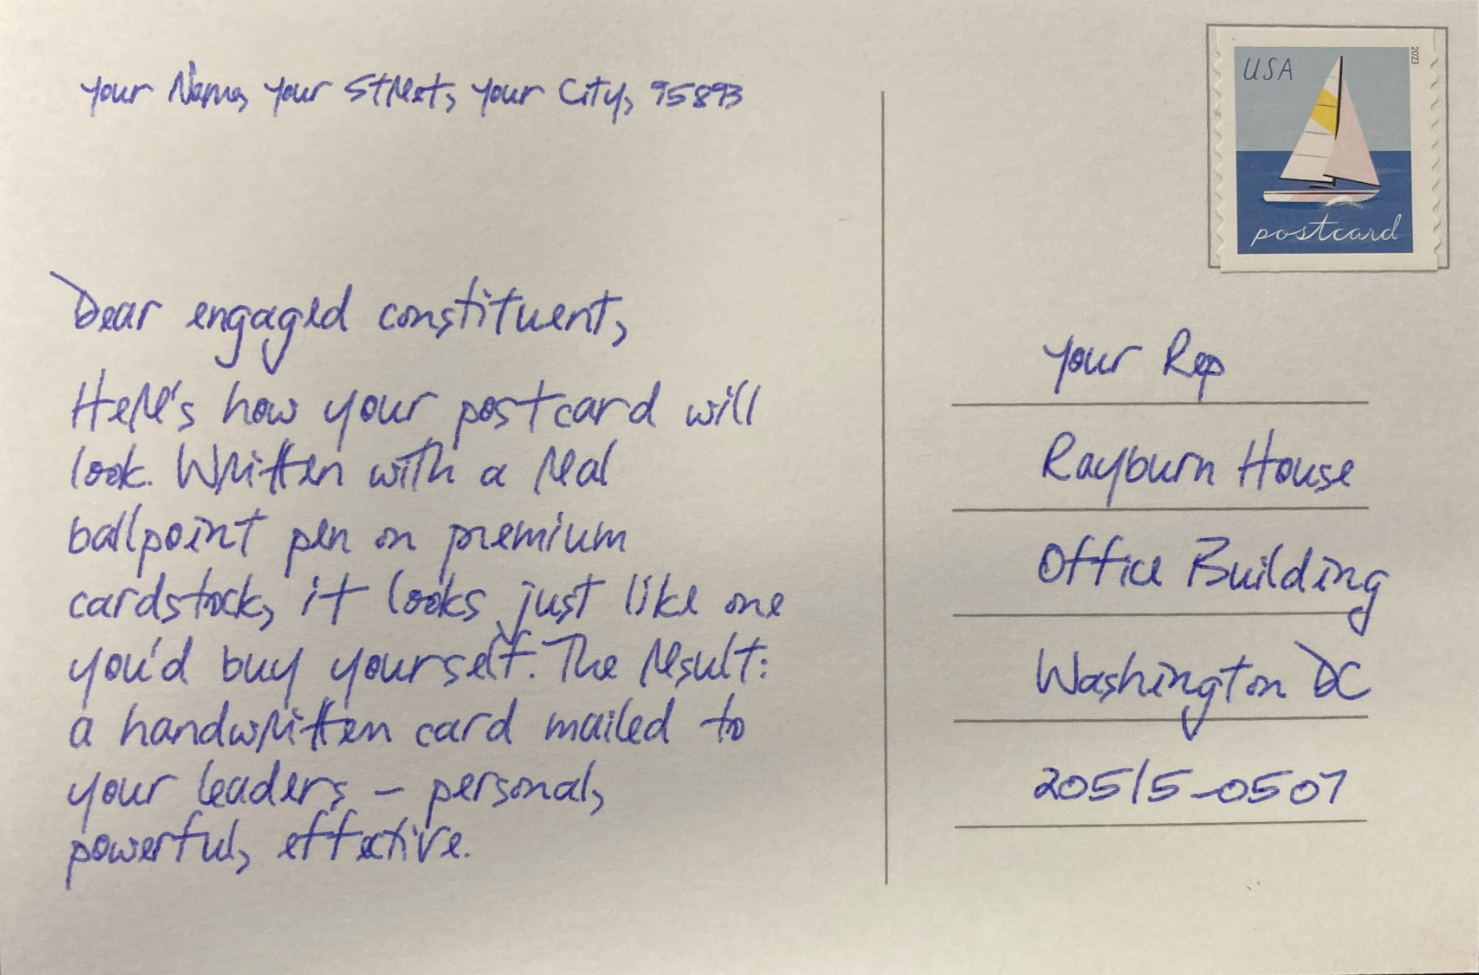 Your Name, Your Street, Your City, 95893
USA
2023
postcard
Dear engaged constituent,
Here's how your postcard will
look. Written with a real
ballpoint pen on premium
cardstock, it looks just like one
you'd buy yourself. The result:
a handwritten card mailed to
your leaders – personal,
powerful, effective.
Your Rep
Rayburn House
Office Building
Washington DC
20515-0507